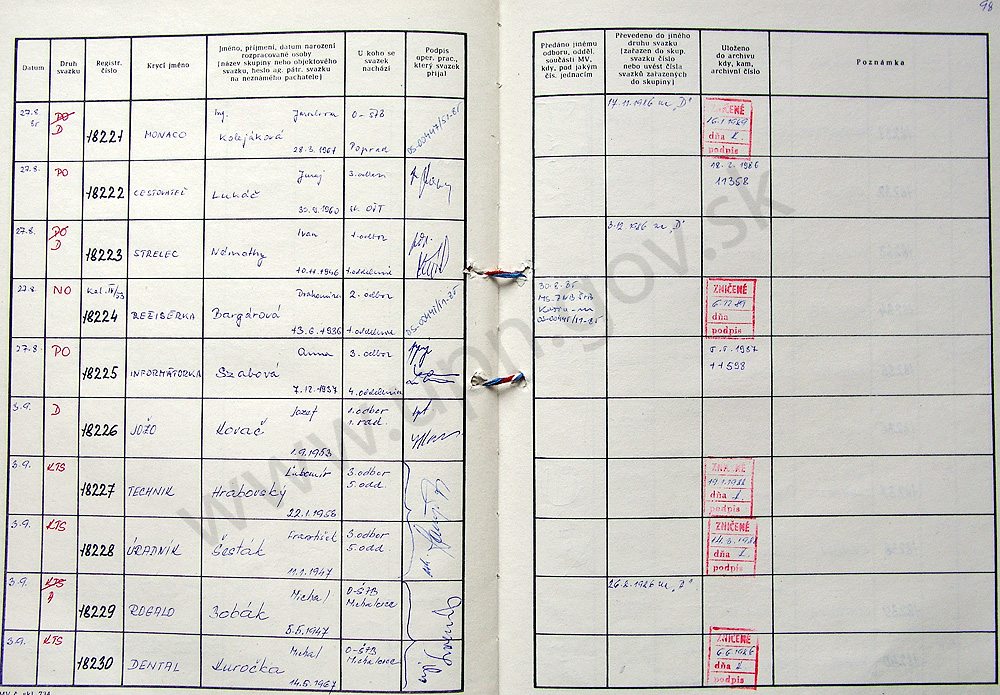 98
Datum
Druh svazku
Registr. číslo
Krycí jméno
Jméno, příjmení, datum narození
rozpracované osoby
(název skupiny nebo objektového
svazku, heslo ag. pátr. svazku
na neznámého pachatele)
U koho se
svazek
nachází
Podpis
oper. prac.,
který svazek
přijal
Předáno jinému
odboru, odděl.
součásti MV,
kdy, pod jakým
čís. jednacím
Převedeno do jiného
druhu svazku
(zařazen do skup.
svazku číslo
nebo uvést čísla
svazků zařazených
do skupiny)
Uloženo
do archivu
kdy, kam,
archivní číslo
Poznámka
27.8. 85 DO D 18221 MONACO Ing. Jaroslava Kolejáková 28.3.1961 O-ŠTB Poprad 05-00447/51-85 17.11.1986 "D" ZNIČENÉ 16.1.1989 dňa podpis
27.8. PO 18222 CESTOVATEĽ Juraj Lukáč 30.9.1960 3. odbor 18.2.1986 11358
27.8. PO D 18223 STRELEC Ivan Némathy 10.11.1946 1. odbor 1. oddelenie 3.12.1986 "D"
27.8. NO 18224 REŽISÉRKA Drahomíra Bargárová 13.6.1936 2. odbor 1. oddelenie 05-00441/11-85 30.8.85 05-00445/11-85 ZNIČENÉ 6.12.89 dňa podpis
27.8. PO 18225 INFORMÁTORKA Anna Szabová 7.12.1937 3. odbor 4. oddelenie 5.5.1987 11598
3.9. D 18226 JOŽO Jozef Kovač 1.9.1953 1. odbor 1. rad.
3.9. KTS 18227 TECHNIK Ľubomír Hrabovský 22.1.1956 3. odbor 5. odd. 19.1.1986 dňa podpis
3.9. KTS 18228 ÚRADNÍK František Šesták 11.1.1947 3. odbor 5. odd ZNIČENÉ dňa podpis
3.9. KTS A 18229 ROGALO Michal Bobák 5.5.1947 O-ŠTB Michalovce 26.2.1986 "D"
3.9. KTS 18230 DENTAL Michal Kuročka 14.5.1967 O-ŠTB Michalovce ZNIČENÉ 6.6.1986 dňa podpis
www.upn.gov.sk